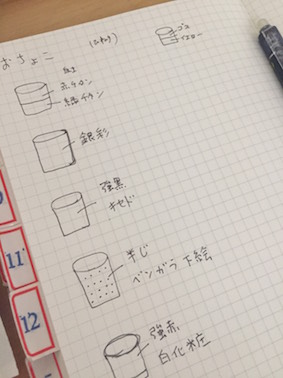 おちょこ
ゴス
イエロー
赤チタン
銀彩
強黒
キセト
半じ
ベンガラ 下絵
強赤
白化粧
11
12